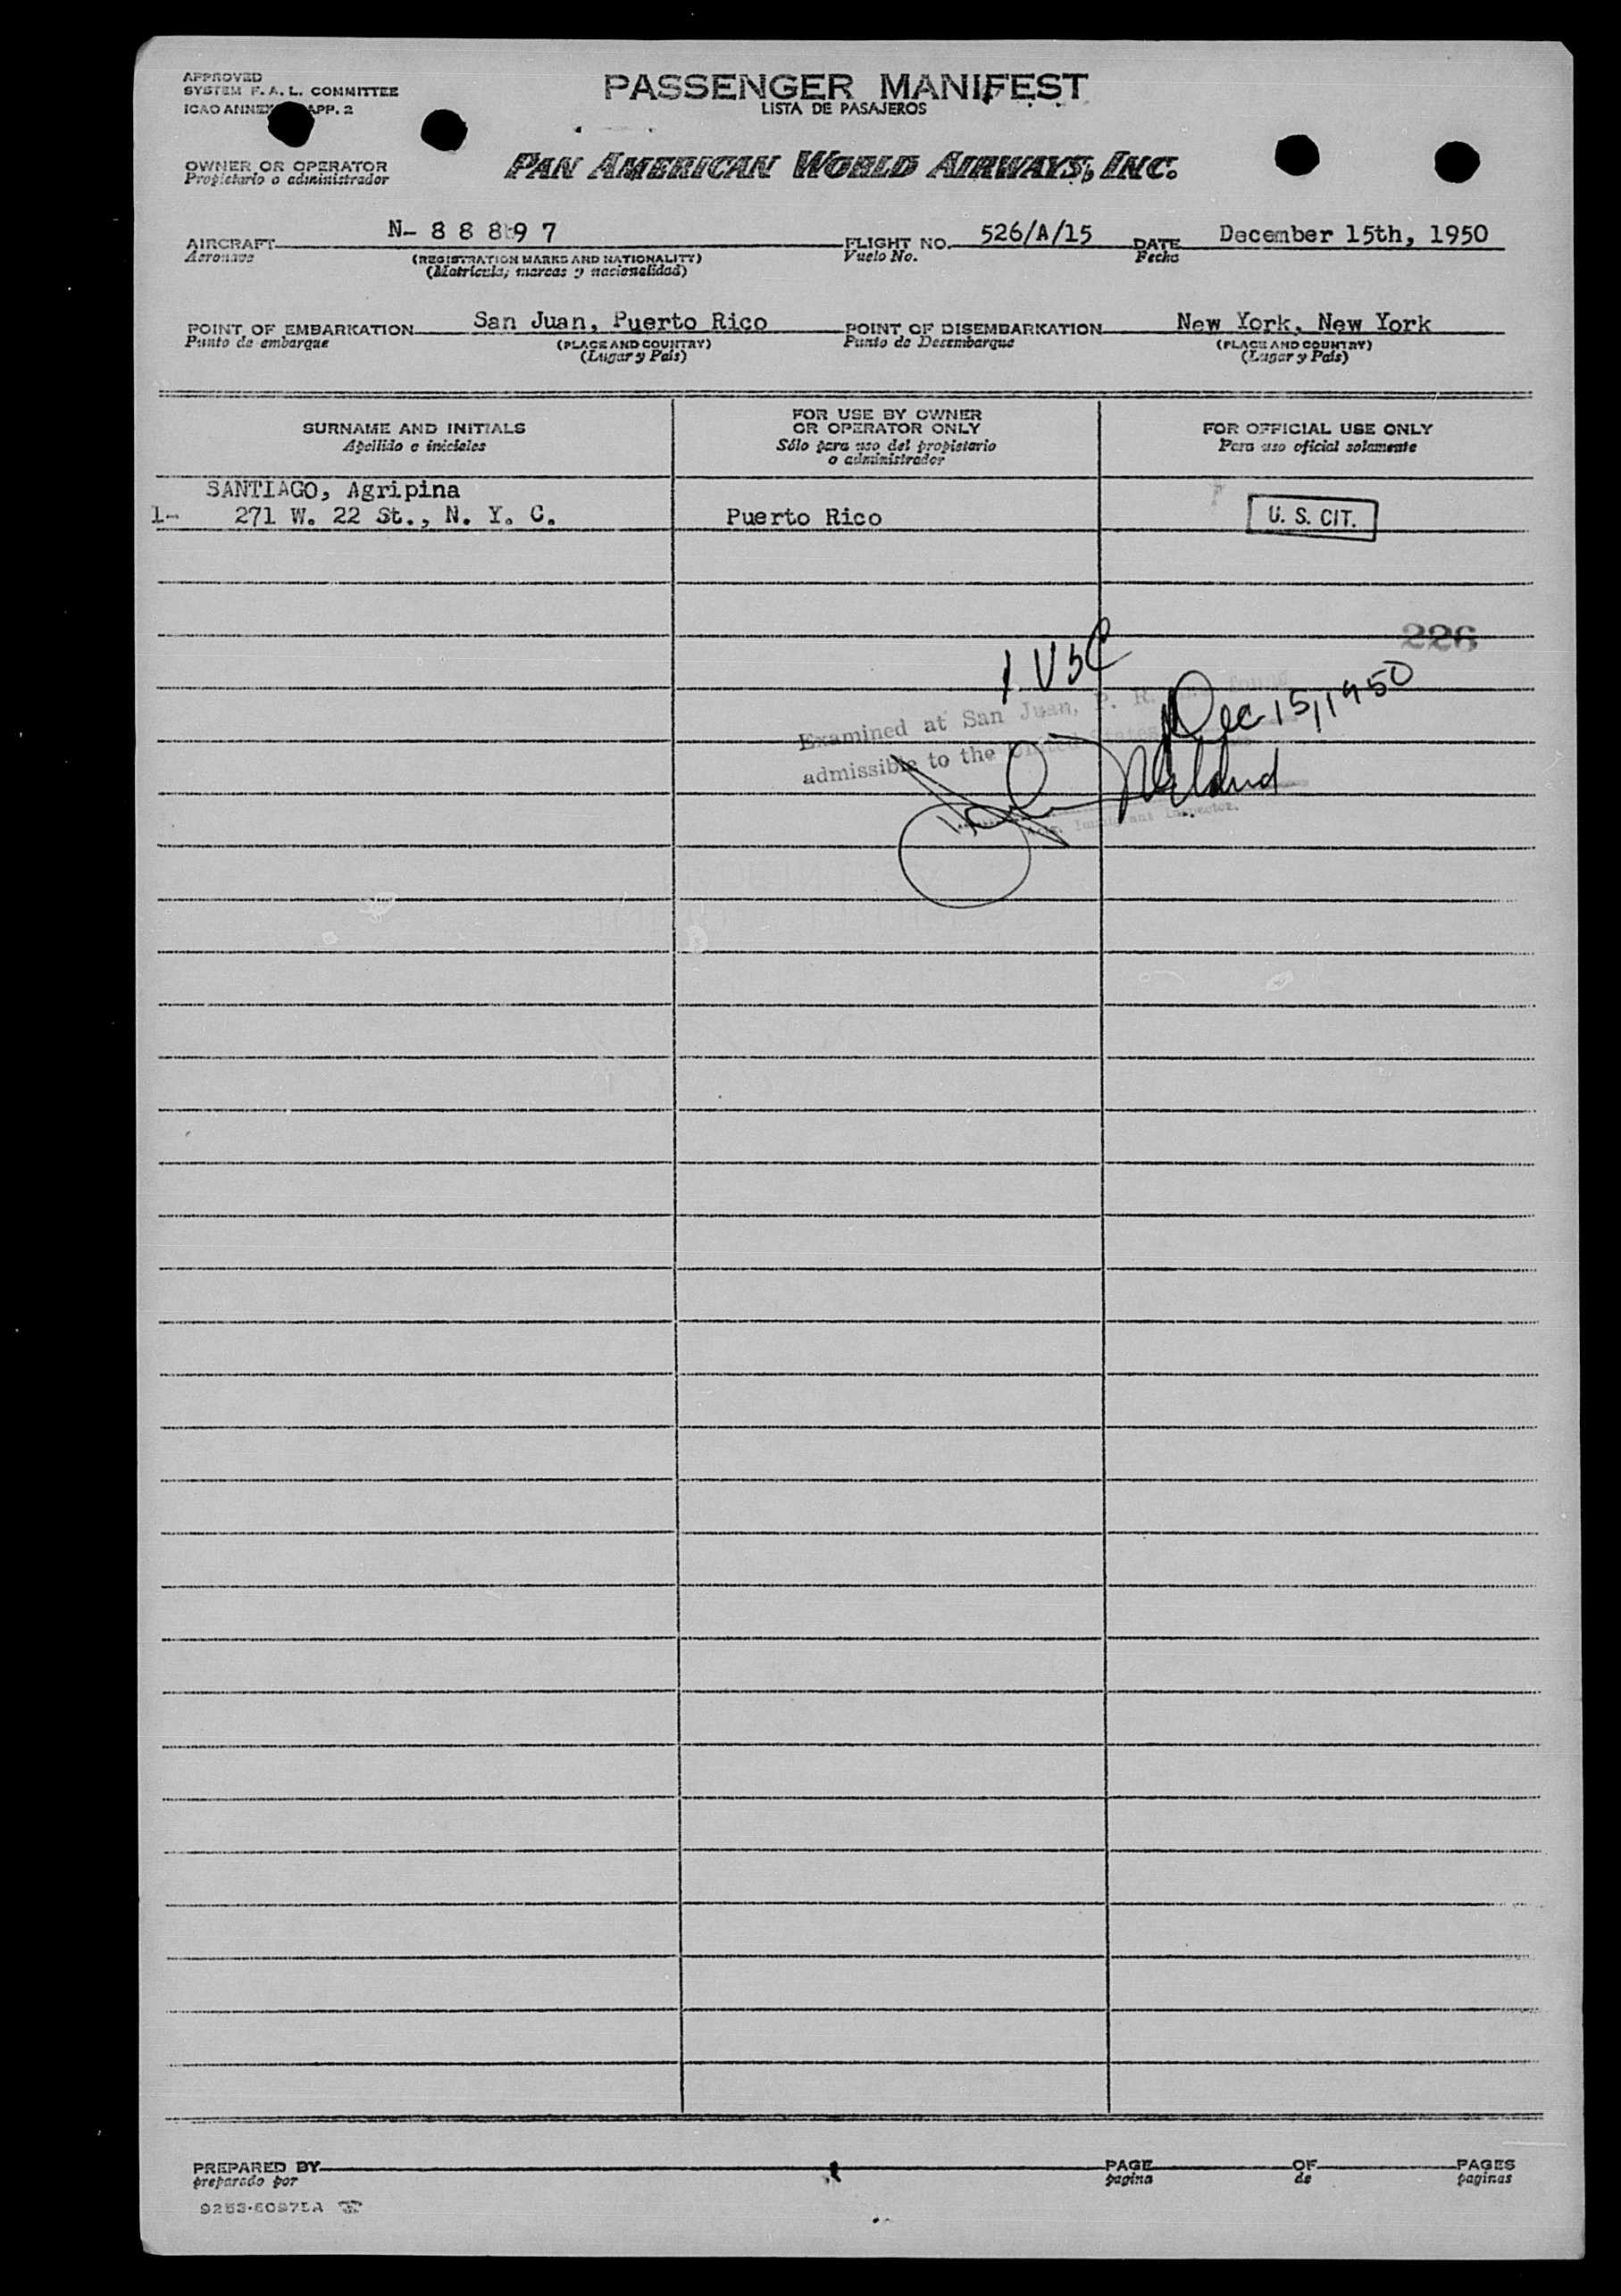 APPROVED
SYSTEM F. A. L. COMMITTEE
ICAO ANNEX APP. 2
PASSENGER MANIFEST
LISTA DE PASAJEROS
OWNER OR OPERATOR
Propietario o administrador
PAN AMERICAN WORLD AIRWAYS, INC.
AIRCRAFT N- 8 8 8 9 7 FLIGHT NO. 526/A/15 DATE December 15th, 1950
Aeronave (REGISTRATION MARKS AND NATIONALITY) Vuelo No. Fecha
(Matrícula, marcas y nacionalidad)
POINT OF EMBARKATION San Juan, Puerto Rico POINT OF DISEMBARKATION New York, New York
Punto de embarque (PLACE AND COUNTRY) Punto de Desembarque (PLACE AND COUNTRY)
(Lugar y País) (Lugar y País)
SURNAME AND INITIALS
Apellido e iniciales
FOR USE BY OWNER
OR OPERATOR ONLY
Sólo para uso del propietario
o administrador
FOR OFFICIAL USE ONLY
Para uso oficial solamente
SANTIAGO, Agripina
1- 271 W. 22 St., N. Y. C. Puerto Rico U. S. CIT.
226
1 USC
Dec 15, 1950
Examined at San Juan, P. R. found
admissible to the United States
Immigrant Inspector.
PREPARED BY PAGE OF PAGES
preparado por pagina de paginas
9253-60975A